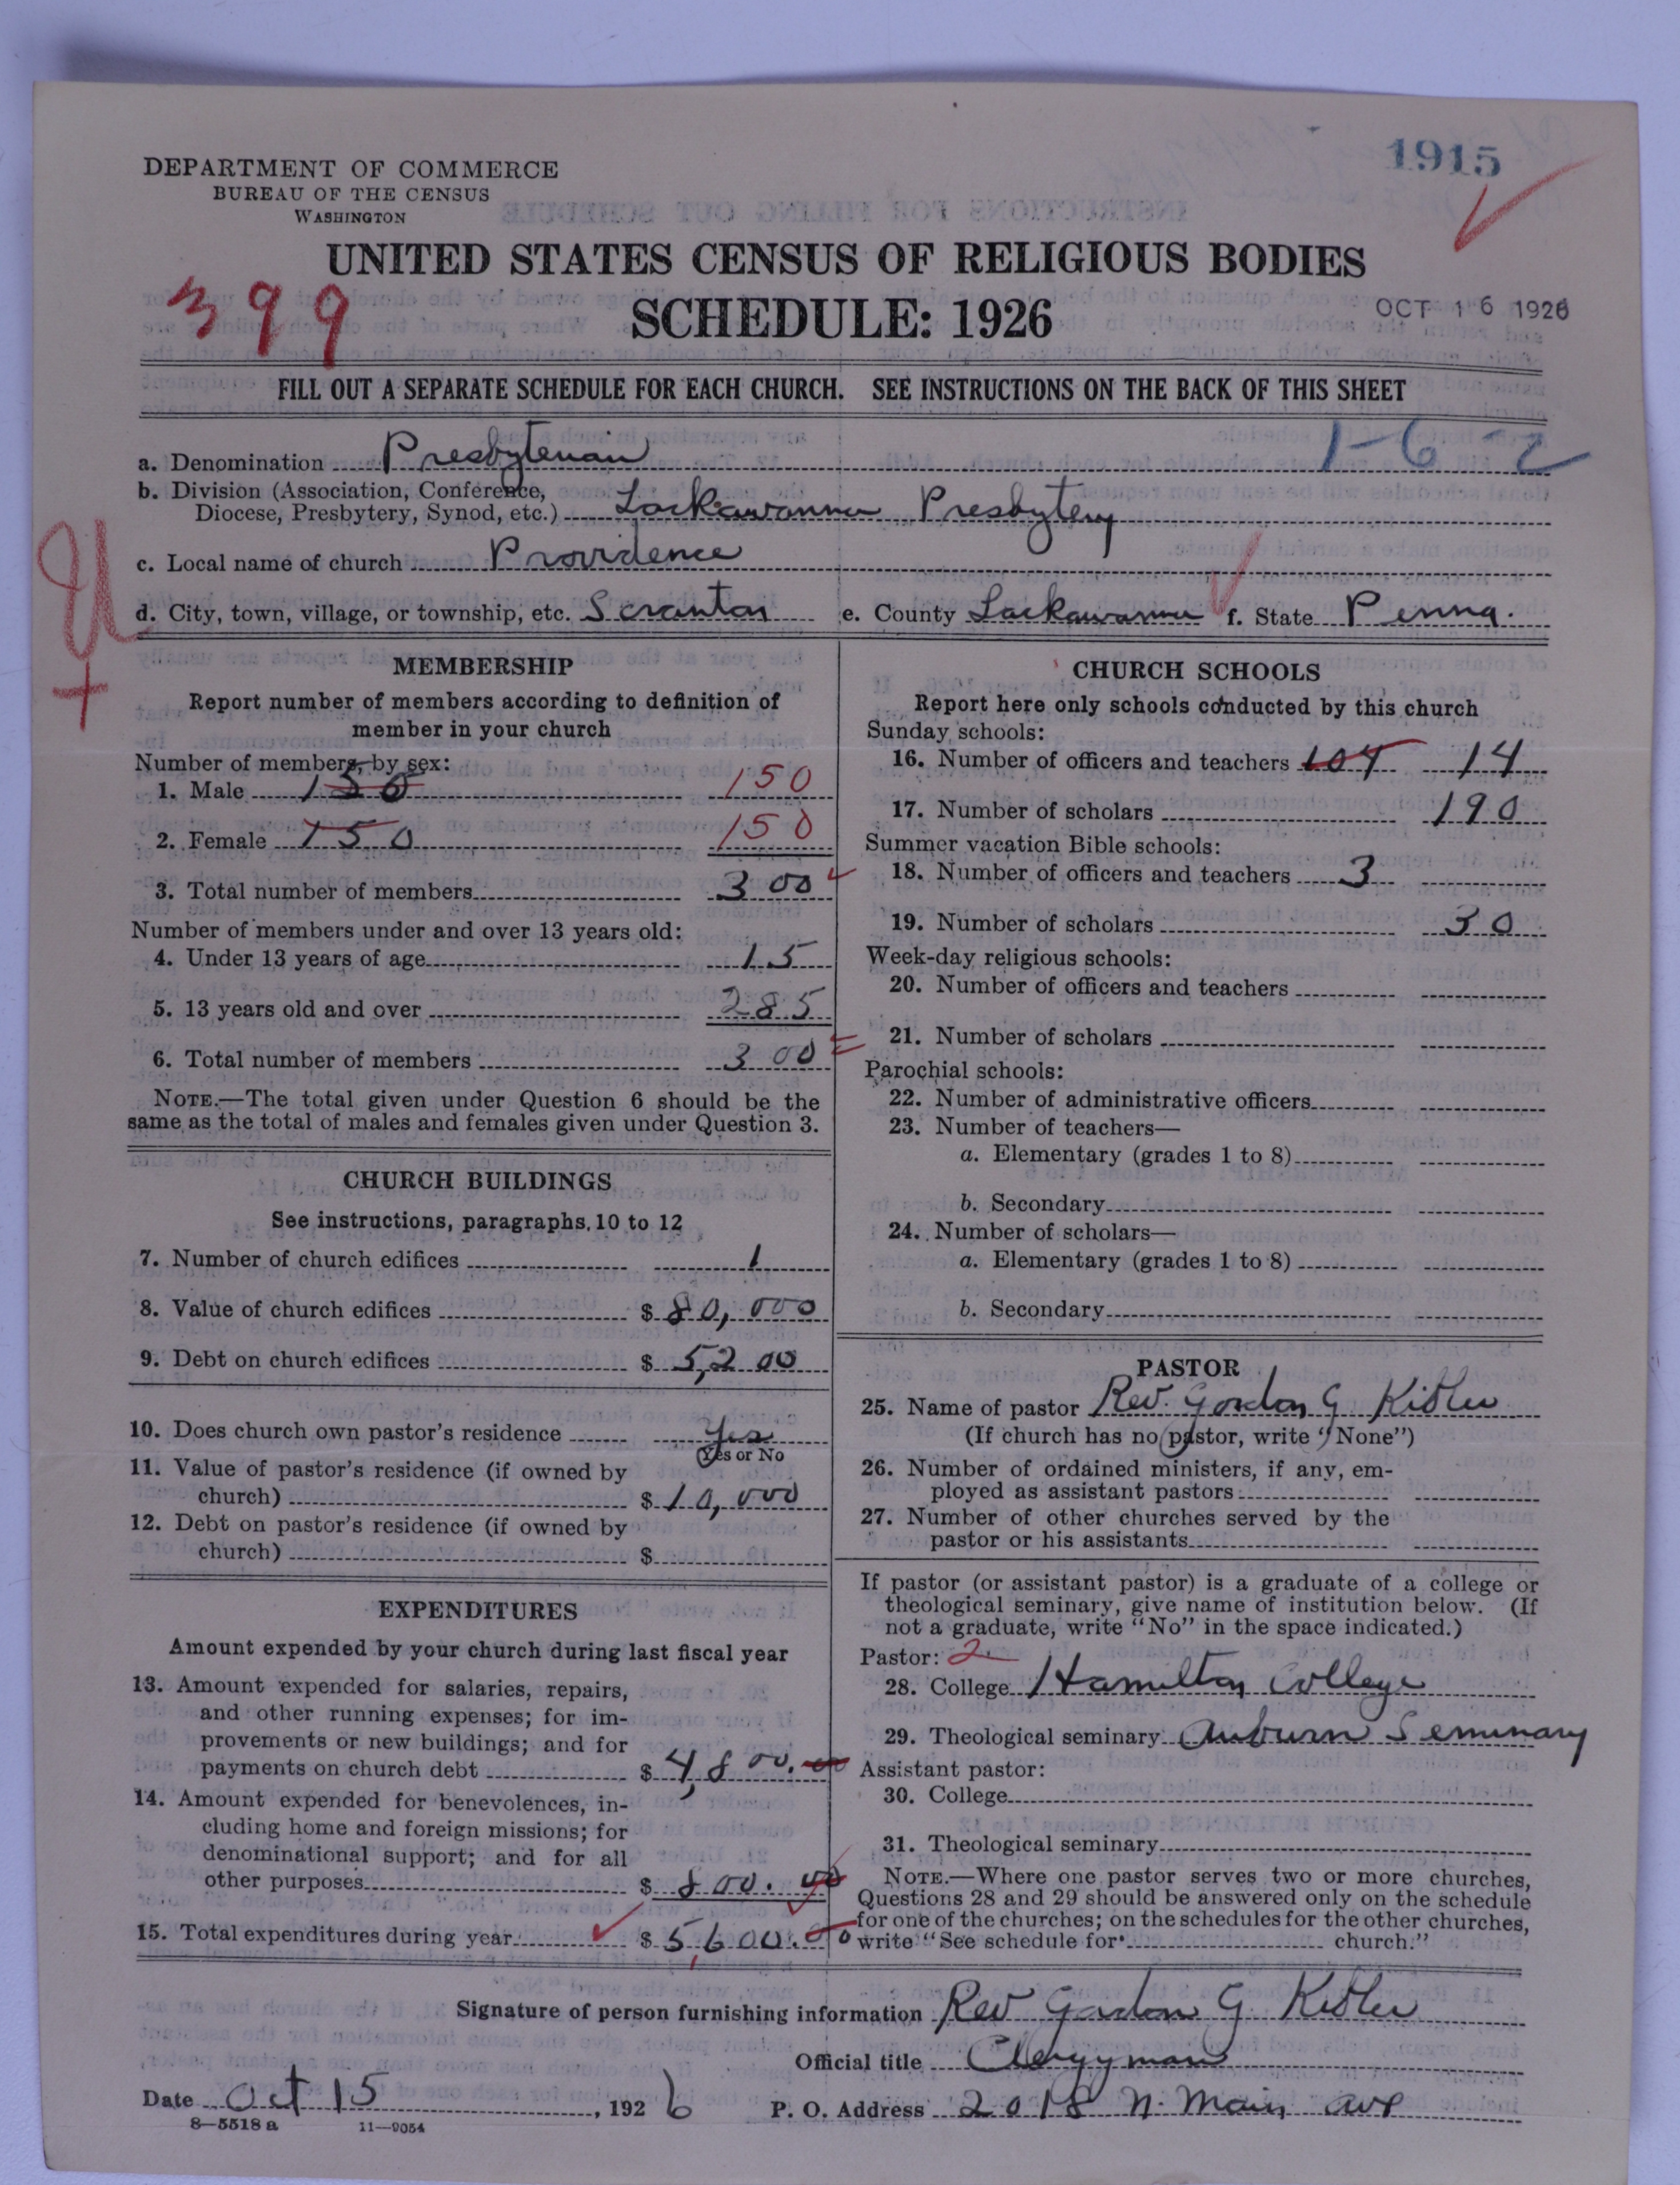 1915
DEPARTMENT OF COMMERCE
BUREAU OF THE CENSUS
WASHINGTON
UNITED STATES CENSUS OF RELIGIOUS BODIES
399
SCHEDULE: 1926
OCT 16 1926
FILL OUT A SEPARATE SCHEDULE FOR EACH CHURCH. SEE INSTRUCTIONS ON THE BACK OF THIS SHEET
1-6-2
a. Denomination Presbyterian
b. Division (Association, Conference,
Diocese, Presbytery, Synod, etc.) Lackawanna Presbytery
c. Local name of church Providence
d. City, town, village, or township, etc. Scranton e. County Lackawanna f. State Penna.
MEMBERSHIP
Report number of members according to definition of
member in your church
Number of members, by sex:
1. Male 150 150
2. Female 150 150
3. Total number of members 300
Number of members under and over 13 years old:
4. Under 13 years of age 15
5. 13 years old and over 285
6. Total number of members 300
NOTE.—The total given under Question 6 should be the
same as the total of males and females given under Question 3.
CHURCH BUILDINGS
See instructions, paragraphs 10 to 12
7. Number of church edifices 1
8. Value of church edifices $ 80,000
9. Debt on church edifices $ 5,200
10. Does church own pastor's residence Yes
(Yes or No
11. Value of pastor's residence (if owned by
church) $ 10,000
12. Debt on pastor's residence (if owned by
church) $
EXPENDITURES
Amount expended by your church during last fiscal year
13. Amount expended for salaries, repairs,
and other running expenses; for im-
provements or new buildings; and for
payments on church debt $ 4,800.00
14. Amount expended for benevolences, in-
cluding home and foreign missions; for
denominational support; and for all
other purposes $ 800.00
15. Total expenditures during year $ 5,600.00
CHURCH SCHOOLS
Report here only schools conducted by this church
Sunday schools:
16. Number of officers and teachers 104 14
17. Number of scholars 190
Summer vacation Bible schools:
18. Number of officers and teachers 3
19. Number of scholars 30
Week-day religious schools:
20. Number of officers and teachers
21. Number of scholars
Parochial schools:
22. Number of administrative officers
23. Number of teachers—
a. Elementary (grades 1 to 8)
b. Secondary
24. Number of scholars—
a. Elementary (grades 1 to 8)
b. Secondary
PASTOR
25. Name of pastor Rev. Gordon G Kidder
(If church has no pastor, write "None")
26. Number of ordained ministers, if any, em-
ployed as assistant pastors
27. Number of other churches served by the
pastor or his assistants
If pastor (or assistant pastor) is a graduate of a college or
theological seminary, give name of institution below. (If
not a graduate, write "No" in the space indicated.)
Pastor: 2
28. College Hamilton College
29. Theological seminary Auburn Seminary
Assistant pastor:
30. College
31. Theological seminary
NOTE.—Where one pastor serves two or more churches,
Questions 28 and 29 should be answered only on the schedule
for one of the churches; on the schedules for the other churches,
write "See schedule for church."
Signature of person furnishing information Rev Gordon G. Kidder
Official title Clergyman
Date Oct 15, 1926 P. O. Address 2018 N. Main Ave
8—5518 a 11—9054